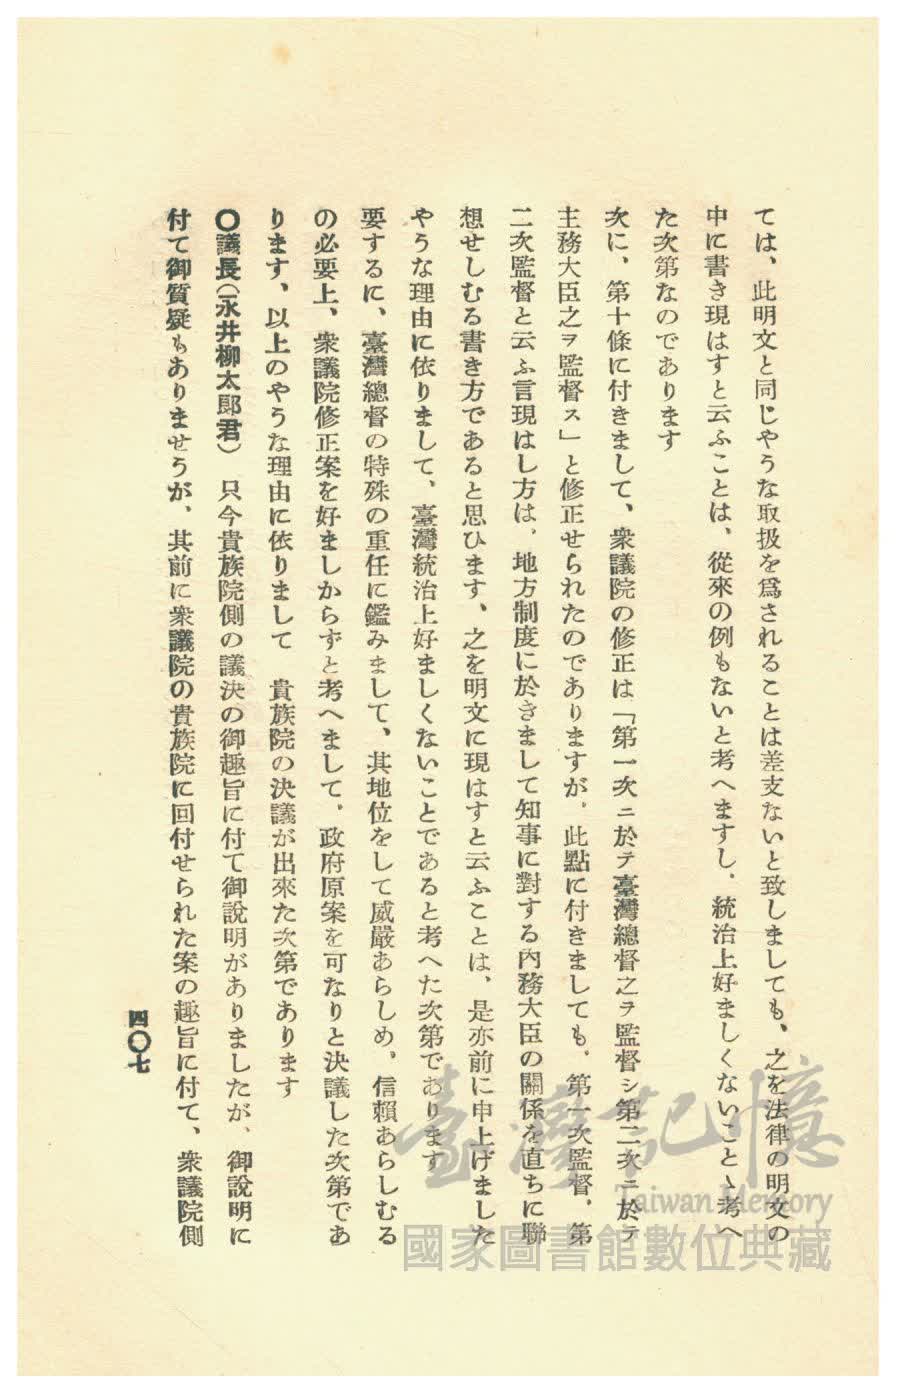 ては、此明文と同じやうな取扱を爲されることは差支ないと致しましても、之を法律の明文の
中に書き現はすと云ふことは、從來の例もないと考へますし、統治上好ましくないことゝ考へ
た次第なのであります
次に、第十條に付きまして、衆議院の修正は「第一次ニ於テ臺灣總督之ヲ監督シ第二次ニ於テ
主務大臣之ヲ監督ス」と修正せられたのでありますが、此點に付きましても、第一次監督、第
二次監督と云ふ言現はし方は、地方制度に於きまして知事に對する內務大臣の關係を直ちに聯
想せしむる書き方であると思ひます、之を明文に現はすと云ふことは、是亦前に申上げました
やうな理由に依りまして、臺灣統治上好ましくないことであると考へた次第であります
要するに、臺灣總督の特殊の重任に鑑みまして、其地位をして威嚴あらしめ、信賴あらしむる
の必要上、衆議院修正案を好ましからずと考へまして、政府原案を可なりと決議した次第であ
ります、以上のやうな理由に依りまして 貴族院の決議が出來た次第であります
〇議長(永井柳太郎君) 只今貴族院側の議決の御趣旨に付て御說明がありましたが、御說明に
付て御質疑もありませうが、其前に衆議院の貴族院に回付せられた案の趣旨に付て、衆議院側
四〇七
臺灣記憶
Taiwan Memory
國家圖書館數位典藏